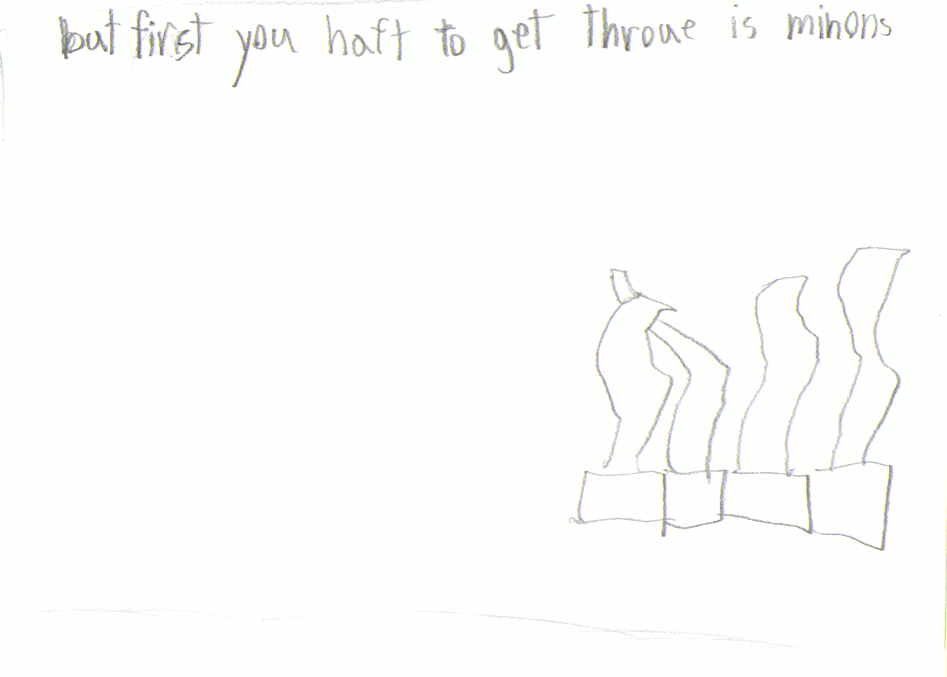 but first you haft to get throue is minons